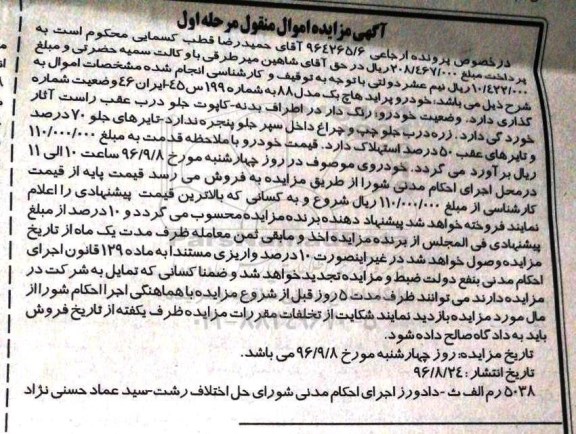 آگهی مزایده اموال منقول مرحله اول
درخصوص پرونده ارجاعی ۹۶۴۲۶۵/۶ آقای حمیدرضا قطب کسمایی محکوم است به
پرداخت مبلغ ۲۰۸/۴۶۷/۰۰۰ ریال در حق آقای شاهین میرطرقی با وکالت سمیه حضرتی و مبلغ
۱۰/۴۲۲/۰۰۰ ریال نیم عشر دولتی با توجه به توقیف و کارشناسی انجام شده مشخصات اموال به
شرح ذیل می باشد: خودرو پراید هاچ بک مدل ۸۸ به شماره ۱۹۹ س ۴۵-ایران ۴۶ وضعیت شماره
گذاری دارد. وضعیت خودرو: رنگ دار در اطراف بدنه-کاپوت جلو درب عقب راست آثار
خوردگی دارد. زره درب جلو چپ و چراغ داخل سپر جلو پنجره ندارد-تایرهای جلو ۷۰ درصد
و تایرهای عقب ۵۰ درصد استهلاک دارد. قیمت خودرو با ملاحظه قدمت به مبلغ ۱۱۰/۰۰۰/۰۰۰
ریال برآورد می گردد. خودروی موصوف در روز چهارشنبه مورخ ۹۶/۹/۸ ساعت ۱۰ الی ۱۱
در محل اجرای احکام مدنی شورا از طریق مزایده به فروش می رسد قیمت پایه از قیمت
کارشناسی از مبلغ ۱۱۰/۰۰۰/۰۰۰ ریال شروع و به کسانی که بالاترین قیمت پیشنهادی را اعلام
نمایند فروخته خواهد شد پیشنهاد دهنده برنده مزایده محسوب می گردد و ۱۰ درصد از مبلغ
پیشنهادی فی المجلس از برنده مزایده اخذ و مابقی ثمن معامله ظرف مدت یک ماه از تاریخ
مزایده وصول خواهد شد در غیر اینصورت ۱۰ درصد واریزی مستندا به ماده ۱۲۹ قانون اجرای
احکام مدنی بنفع دولت ضبط و مزایده تجدید خواهد شد و ضمنا کسانی که تمایل به شرکت در
مزایده دارند می توانند ظرف مدت ۵ روز قبل از شروع مزایده با هماهنگی اجرا احکام شورا از
مال مورد مزایده بازدید نمایند شکایت از تخلفات مقررات مزایده ظرف یکهفته از تاریخ فروش
باید به دادگاه صالح داده شود.
تاریخ مزایده: روز چهارشنبه مورخ ۹۶/۹/۸ می باشد.
تاریخ انتشار: ۹۶/۸/۲۴
۵۰۳۸ رم الف ث -دادورز اجرای احکام مدنی شورای حل اختلاف رشت-سید عماد حسنی نژاد